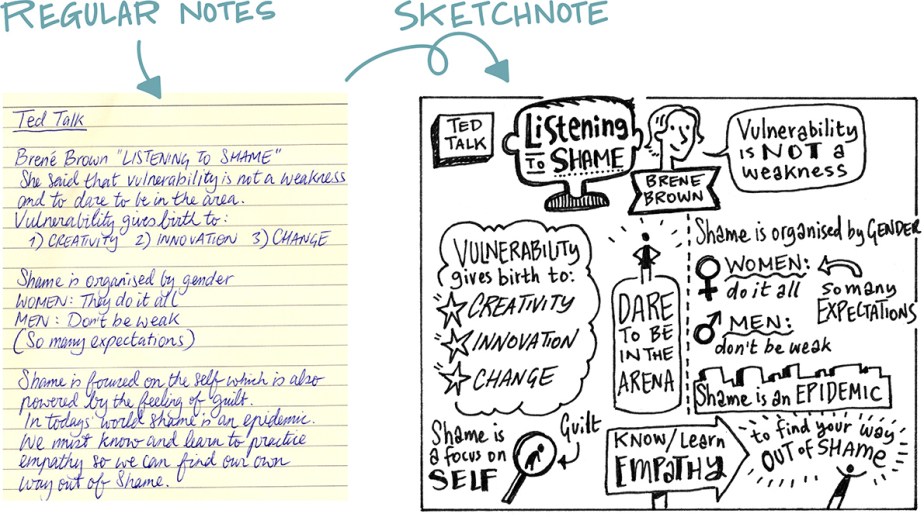 REGULAR NOTES
SKETCHNOTE
Ted Talk
Brené Brown "LISTENING TO SHAME"
She said that vulnerability is not a weakness
and to dare to be in the area.
Vulnerability gives birth to:
1) CREATIVITY 2) INNOVATION 3) CHANGE
Shame is organised by gender
WOMEN: They do it all
MEN: Don't be weak
(So many expectations)
Shame is focused on the self which is also
powered by the feeling of guilt.
In todays' world shame is an epidemic.
We must know and learn to practice
empathy so we can find our own
way out of Shame.
TED
TALK
Listening
TO SHAME
BRENE
BROWN
Vulnerability
is NOT a
weakness
VULNERABILITY
gives birth to:
CREATIVITY
INNOVATION
CHANGE
DARE
TO BE
IN THE
ARENA
Shame is organised by GENDER
WOMEN:
do it all
MEN:
don't be weak
so many
EXPECTATIONS
Shame is an EPIDEMIC
Shame is
a focus on
SELF
Guilt
KNOW/Learn
EMPATHY
to find your way
OUT OF SHAME